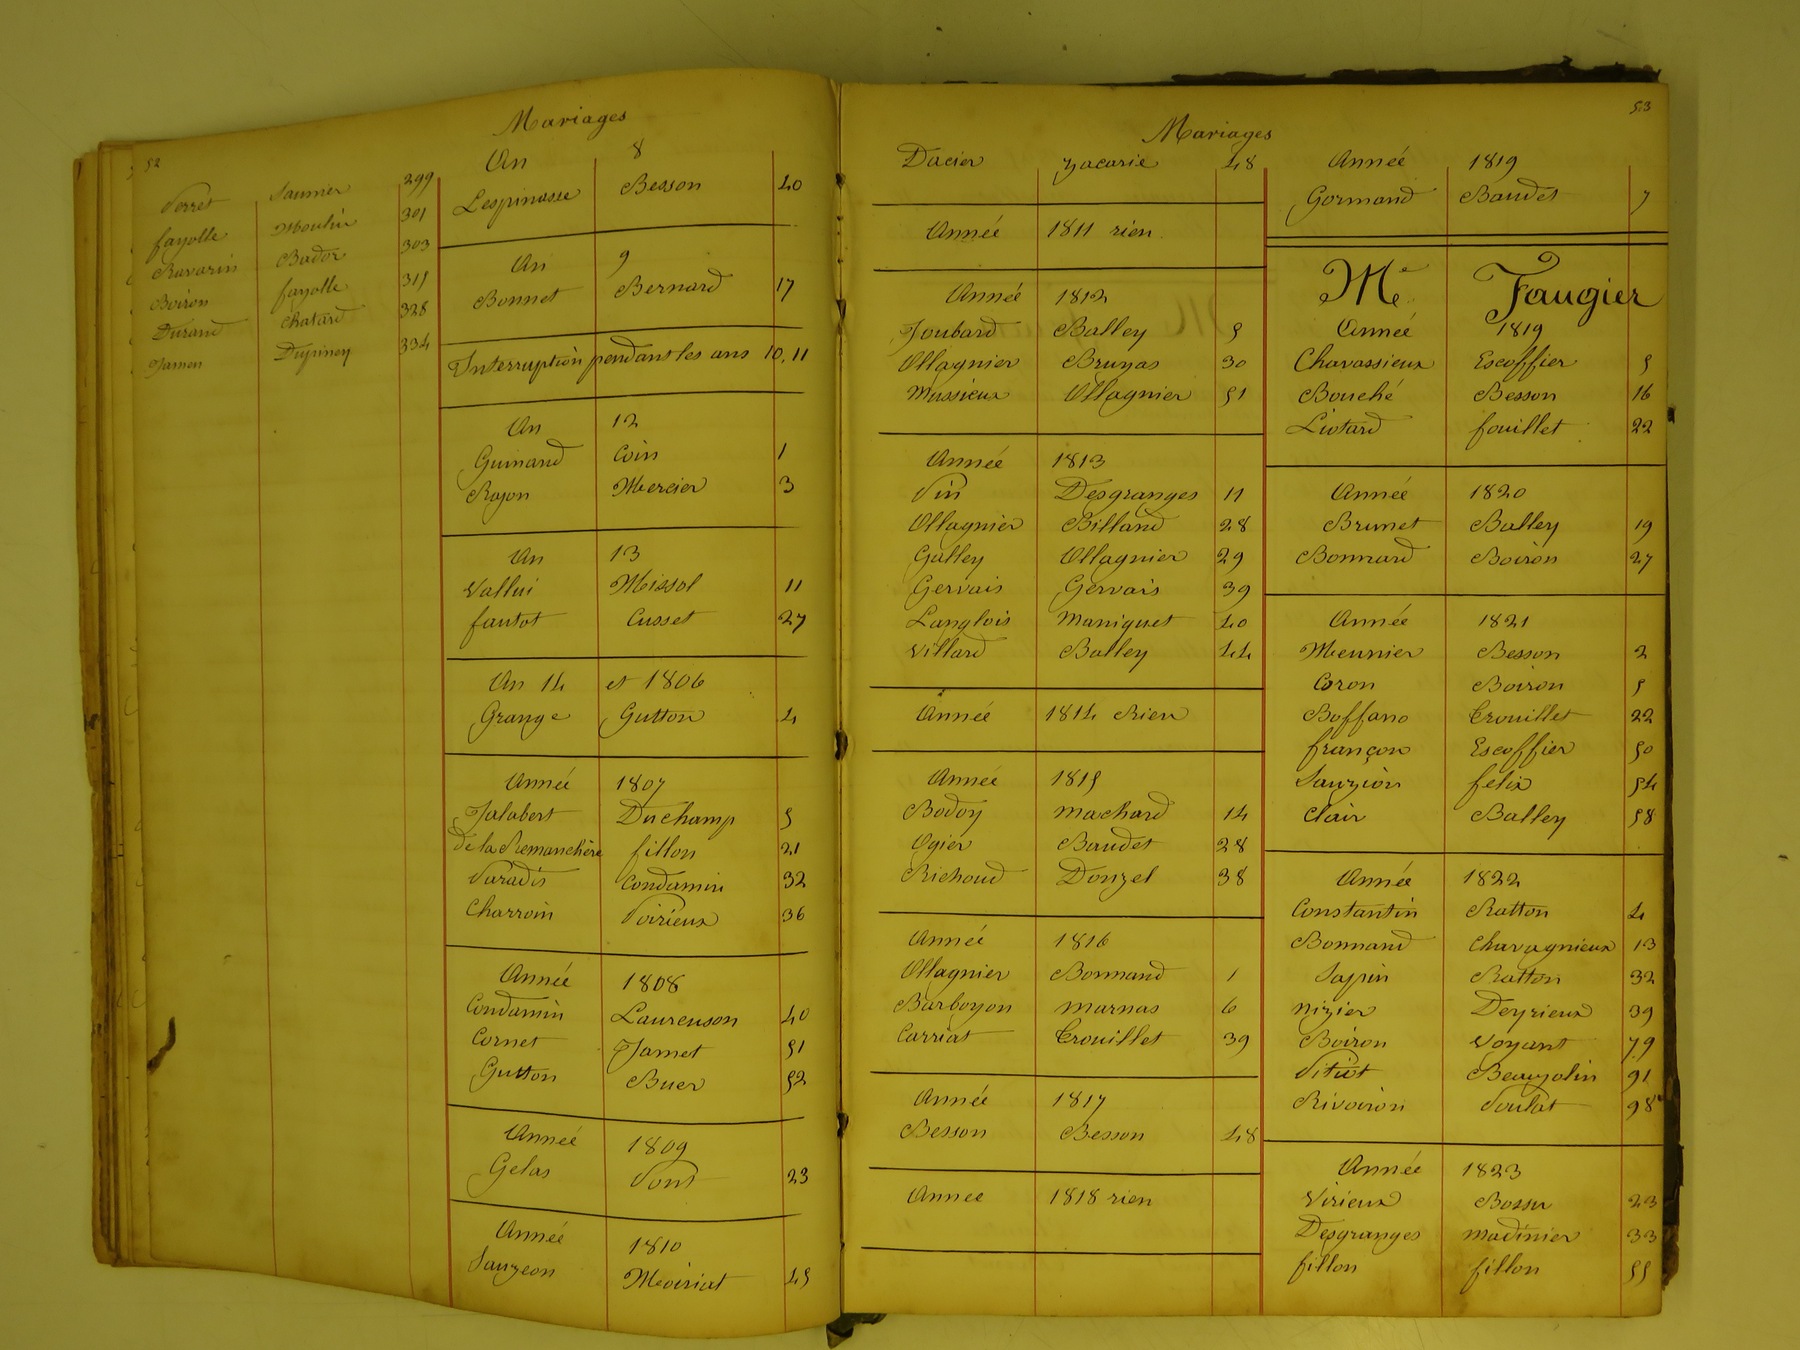 52
Mariages
Perret Saunier 299
fayolle Moulin 301
Ravarin Bador 303
Boiron fayolle 315
Durand Chatard 328
Jamen Dupiney 334
An 8
Lespinasse Besson 40
An 9
Bonnet Bernard 17
Interruption pendant les ans 10, 11
An 12
Guinand Coin 1
Rojon Mercier 3
An 13
Vallui Missol 11
fautot Cusset 27
An 14 et 1806
Grange Gutton 4
Année 1807
Jalabert Duchamp 5
de la Remanchère fillon 21
Paradis Condamin 32
Charroin Poirieux 36
Année 1808
Condamin Laurenson 40
Cornet Jamet 51
Gutton Buer 52
Année 1809
Gelas Pont 23
Année 1810
Sauzeon Moiriat 45
53
Mariages
Dacier Zacarie 48
Année 1811 rien
Année 1812
Joubard Balley 5
Ollagnier Bruyas 30
Mussieux Ollagnier 51
Année 1813
Pin Desgranges 11
Ollagnier Billand 28
Galley Ollagnier 29
Gervais Gervais 39
Langlois Maniquet 40
Villard Balley 44
Année 1814 Rien
Année 1815
Bodoy Machard 14
Ogier Baudet 28
Richoud Donzel 38
Année 1816
Ollagnier Bonnand 1
Barboyon Marnas 6
Carriat Trouillet 39
Année 1817
Besson Besson 48
Annee 1818 rien
Année 1819
Gormand Baudet 7
Me Faugier
Année 1819
Chavassieux Escoffier 5
Bouché Besson 16
Liotard fouillet 22
Année 1820
Brunet Balley 19
Bonnard Boiron 27
Année 1821
Meunier Besson 2
Coron Boiron 5
Boffano Trouillet 22
françon Escoffier 50
Sauzion felix 54
Clair Balley 58
Année 1822
Constantin Ratton 4
Bonnand Chavagnieux 13
Sapin Ratton 32
Nizier Deyrieux 39
Boiron Voyant 79
Pitiot Beaujolin 91
Rivoiron Poulat 98
Année 1823
Virieux Bossu 23
Desgranges Madinier 33
fillon fillon 55